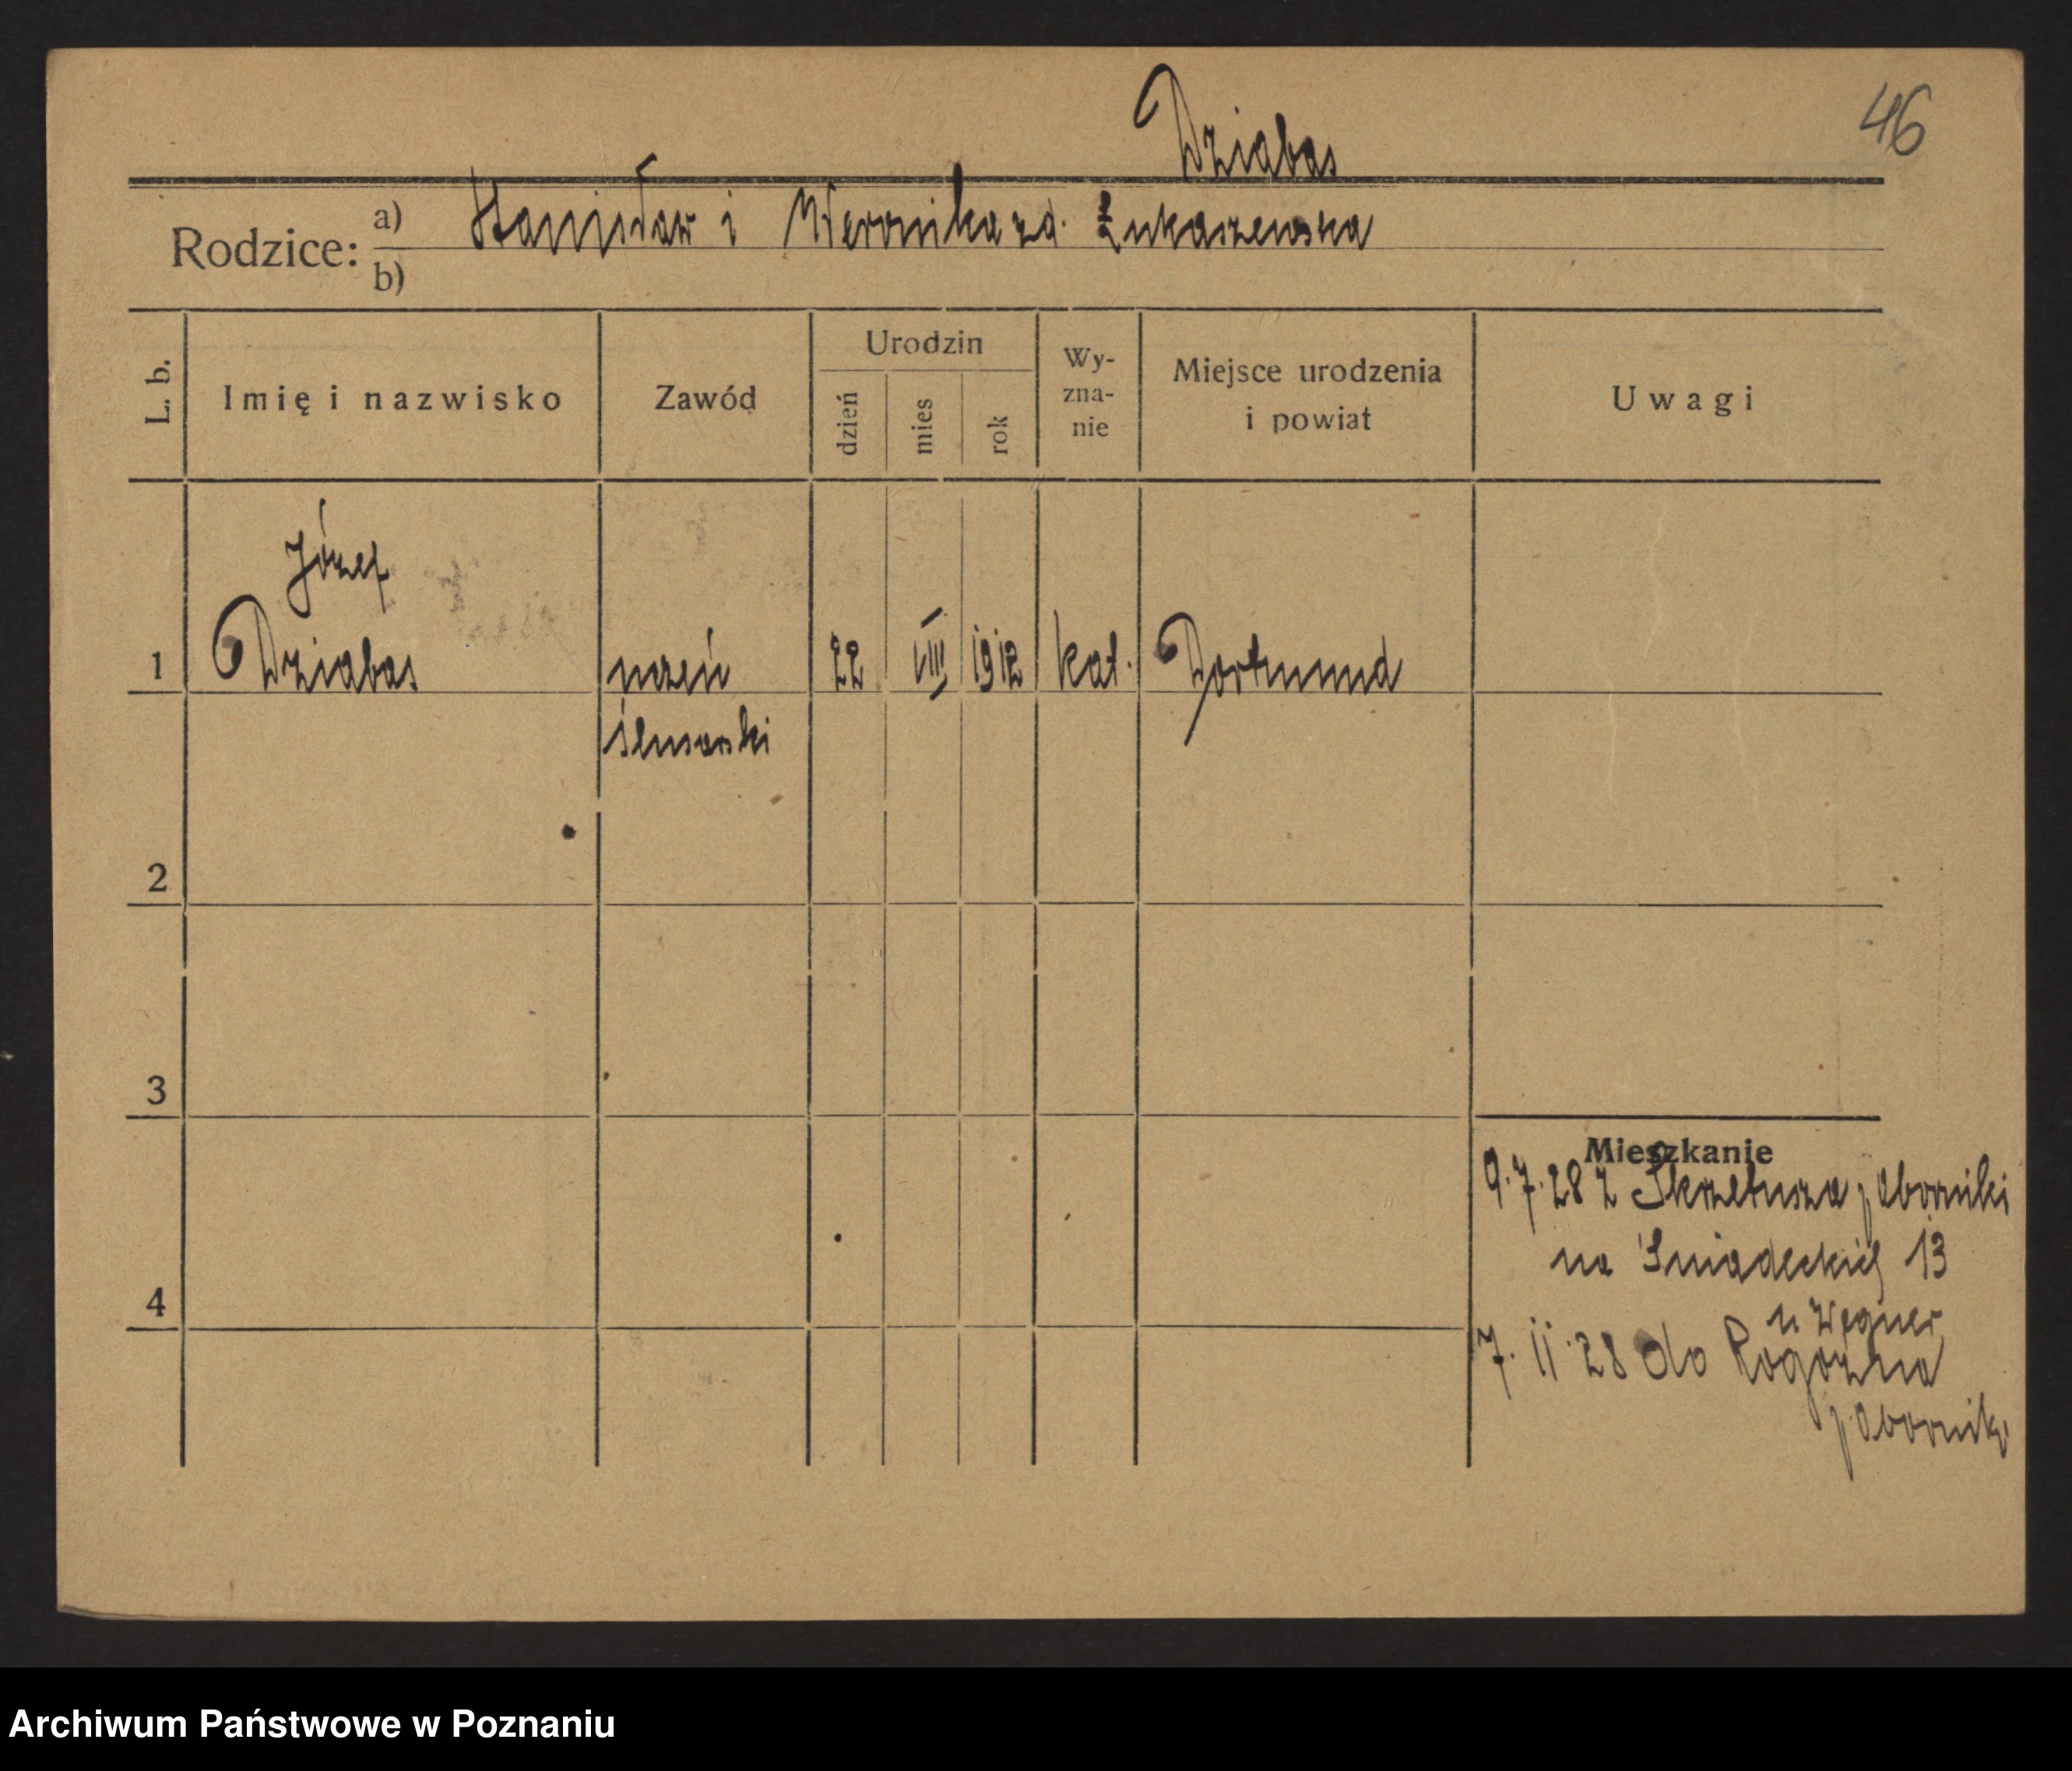 46
Dziabas
Rodzice: a) Stanisław i Weronika zd. Łukaszewska
b)
L. b.
Imię i nazwisko
Zawód
Urodzin
dzień
mies
rok
Wy-
zna-
nie
Miejsce urodzenia
i powiat
Uwagi
Józef
1 Dziabas uczeń 22 VIII 1912 kat. Dortmund
ślusarski
2
3
4
Mieszkanie
9.7.28 z Skrzetusza p Oborniki
na Śniadeckich 13
u Wegner
7.11.28 do Rogoźna
p. Oborniki
Archiwum Państwowe w Poznaniu